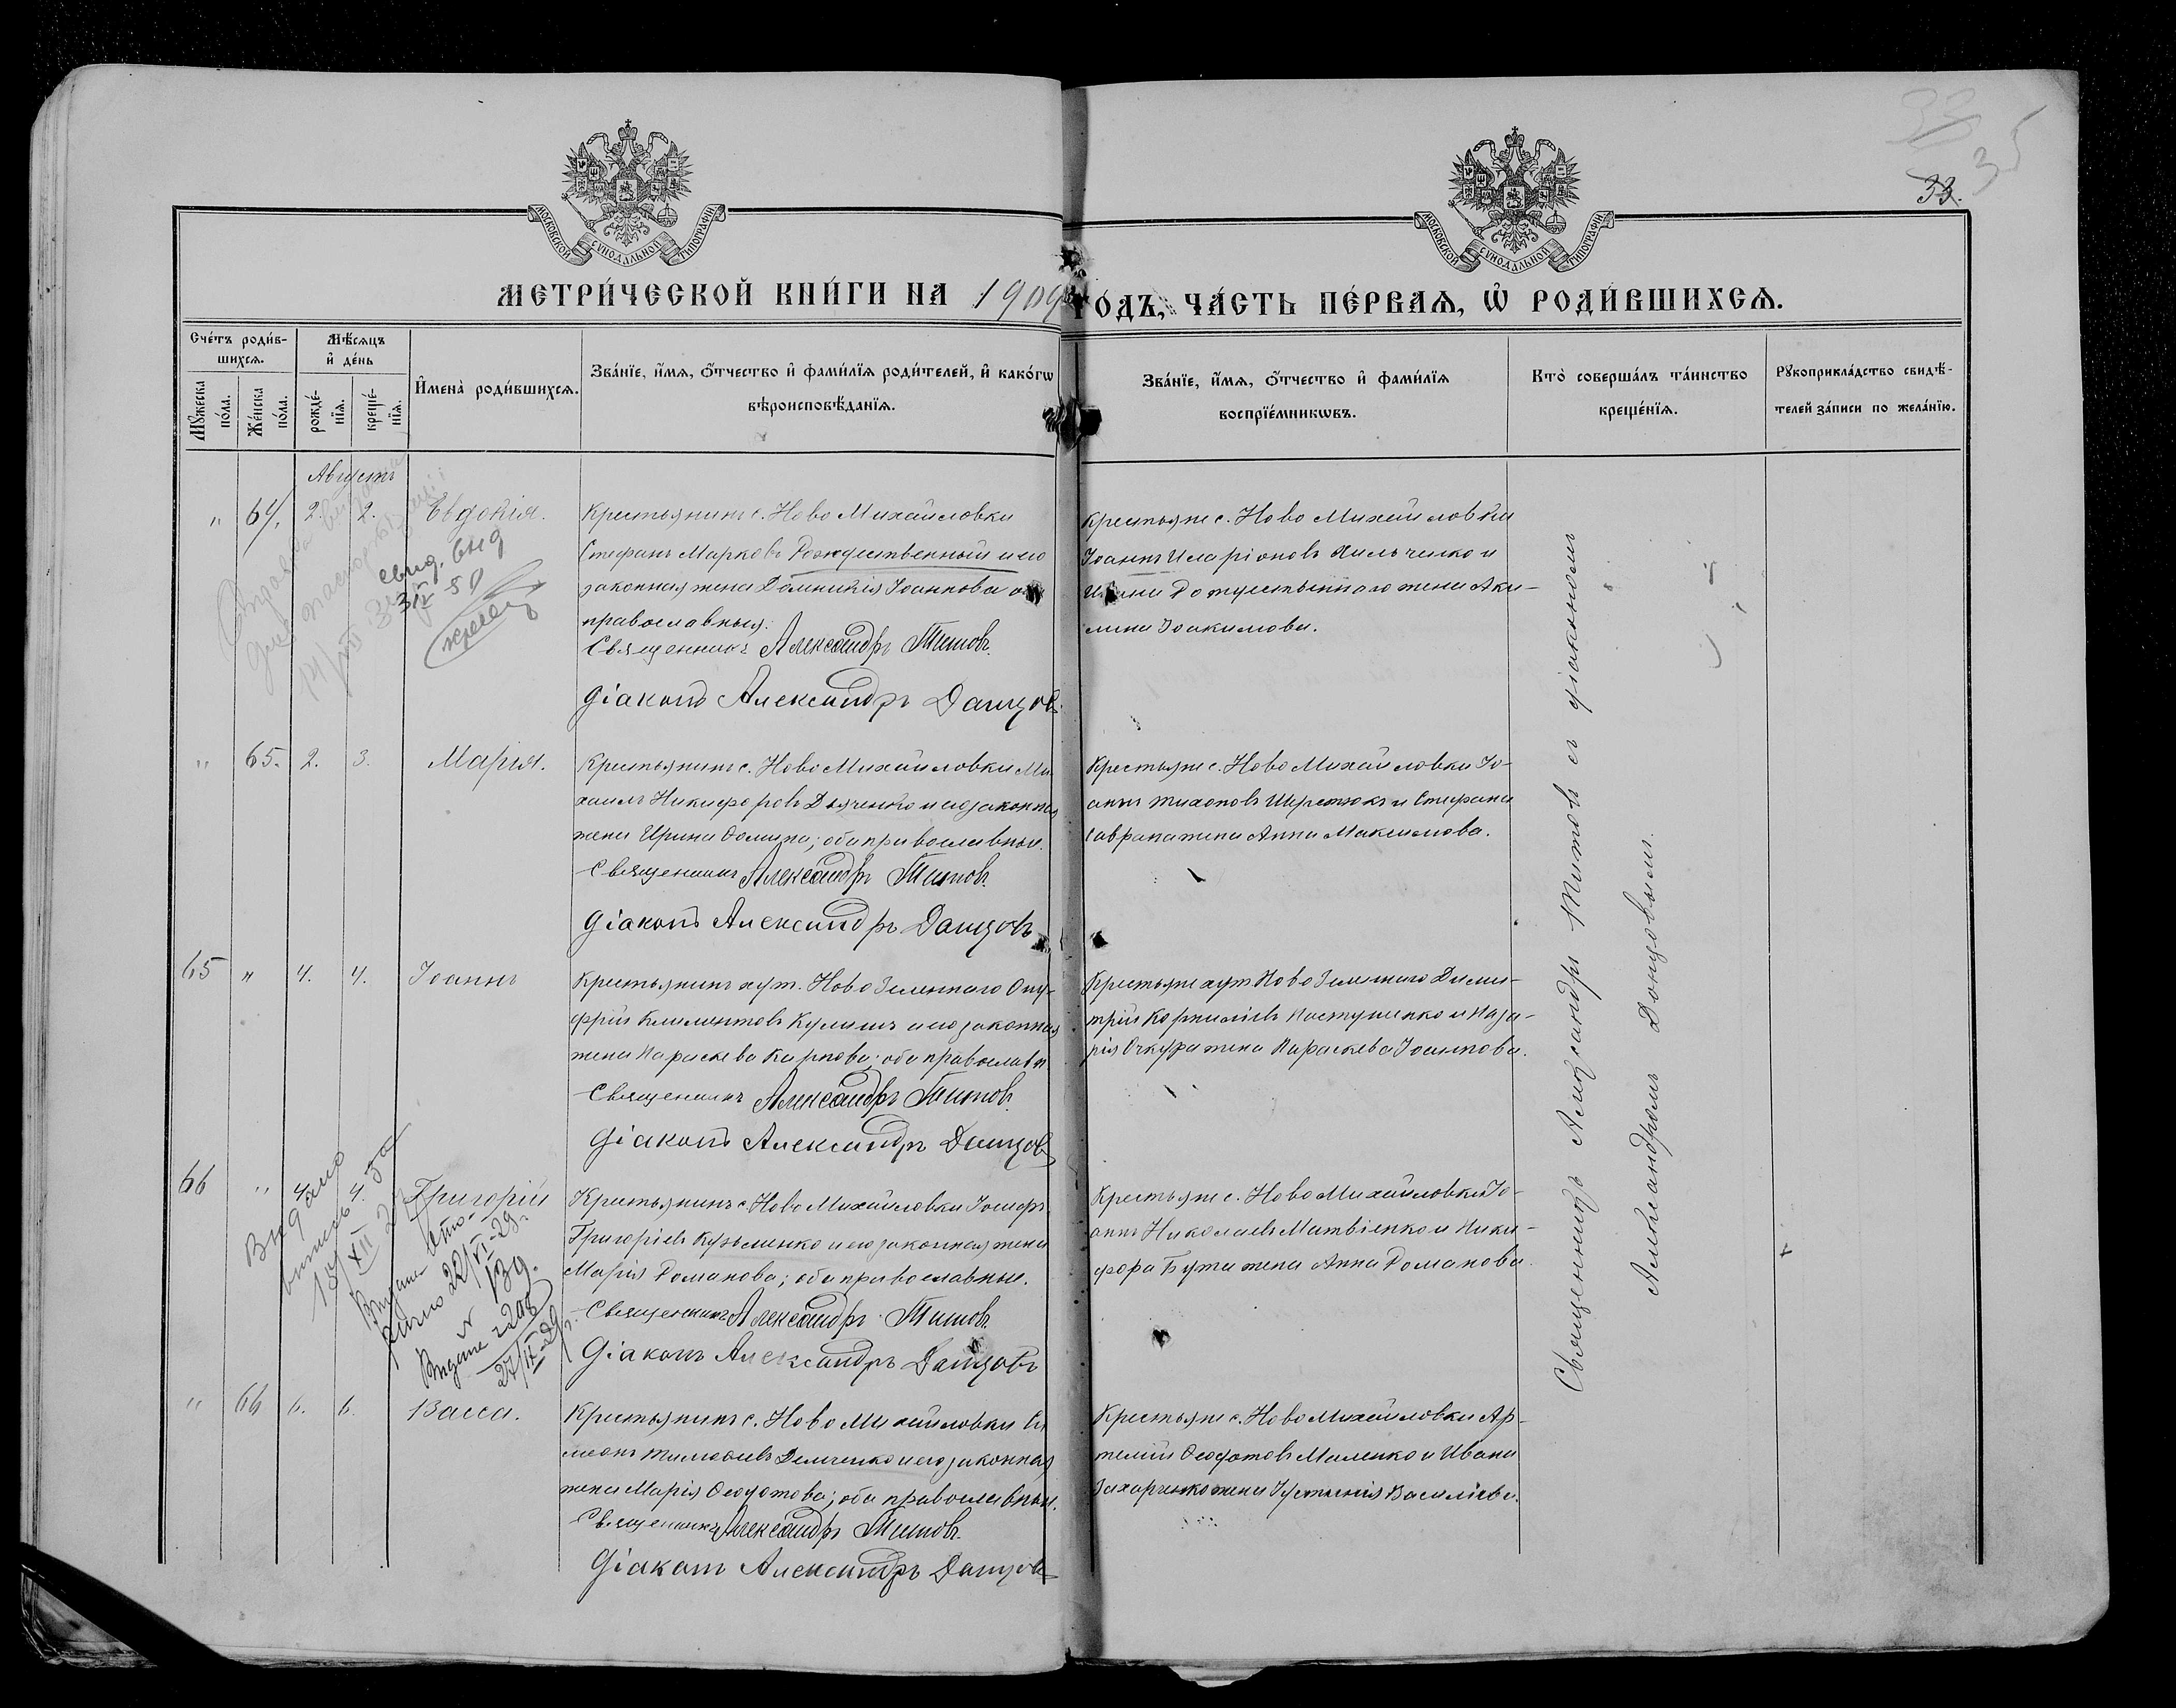 МОСКОВСКОЙ СѴНОДАЛЬНОЙ ТИПОГРАФІИ
МОСКОВСКОЙ СѴНОДАЛЬНОЙ ТИПОГРАФІИ
33.
35
МЕТРИ́ЧЕСКОЙ КНИ́ГИ НА 1909 ГО́ДЪ, ЧА́СТЬ ПЕ́РВАЯ, Ѡ҆ РОДИ́ВШИХСЯ.
Сче́тъ роди́в-
шихся.
Мꙋ́жеска по́ла.
Же́нска по́ла.
Мѣ́сяцъ
и҆ де́нь
рожде́-
нїя.
креще́-
нїя.
И҆мена̀ роди́вшихся.
Зва́нїе, и҆́мя, ѻ҆́тчество и҆ фами́лїя роди́телей, и҆ како́гѡ
вѣроисповѣ́данїя.
Зва́нїе, и҆́мя, ѻ҆́тчество и҆ фами́лїя
воспрїе́мникѡвъ.
Кто̀ соверша́лъ та́инство
креще́нїя.
Рꙋкоприкла́дство свидѣ́-
телей за́писи по жела́нїю.
Августъ
" 64. 2. 2. Евдокія.
Крестьянинъ с. Ново Михайловки
Стефанъ Марковъ Рождественный и его
законная жена Домникія Іоаннова
православныя.
Священникъ Александръ Титовъ.
Діаконъ Александръ Данцовъ
Крестьяне с. Ново Михайловки
Іоаннъ Иларіоновъ Кильченко и
Рождественнаго жена Аки-
лина Іоакимова.
" 65. 2. 3. Марія.
Крестьянинъ с. Ново Михайловки Ми-
хаилъ Никифоровъ Дяченко и его законная
жена Ирина Ѳомина; оба православные.
Священникъ Александръ Титовъ.
Діаконъ Александръ Данцовъ
Крестьяне с. Ново Михайловки Іо-
аннъ Тихоновъ Шерстюкъ и Стефана
Саврана жена Анна Максимова.
65 " 4. 4. Іоаннъ
Крестьянинъ хут. Ново Зеленаго Ону-
фрій Климентовъ Кулишъ и его законная
жена Параскева Карпова; оба православн.
Священникъ Александръ Титовъ.
Діаконъ Александръ Данцовъ
Крестьяне хут Ново Зеленаго Дими-
трій Корниліевъ Пастушенко и Наза-
рія Очкура жена Параскева Іоаннова.
66 " 4. 4. Григорій
Крестьянинъ с. Ново Михайловки Іосифъ
Григоріевъ Кузьменко и его законная жена
Марія Романова; оба православные.
Священникъ Александръ Титовъ.
Діаконъ Александръ Данцовъ
Крестьяне с. Ново Михайловки Іо-
аннъ Николаевъ Матвіенко и Ники-
фора Бута жена Анна Романова.
Видано
витягъ
" 66 6. 6. Васса.
Крестьянинъ с. Ново Михайловки Си-
меонъ Тимоѳеевъ Демченко и его законная
жена Марія Ѳеодотова; оба православные.
Священникъ Александръ Титовъ.
Діаконъ Александръ Данцовъ
Крестьяне с. Ново Михайловки Ар-
темій Ѳеодотовъ Маленко и Ивана
Захарченко жена Іустинія Василіева.
Священникъ Александръ Титовъ съ діакономъ
Александромъ Донцовымъ.